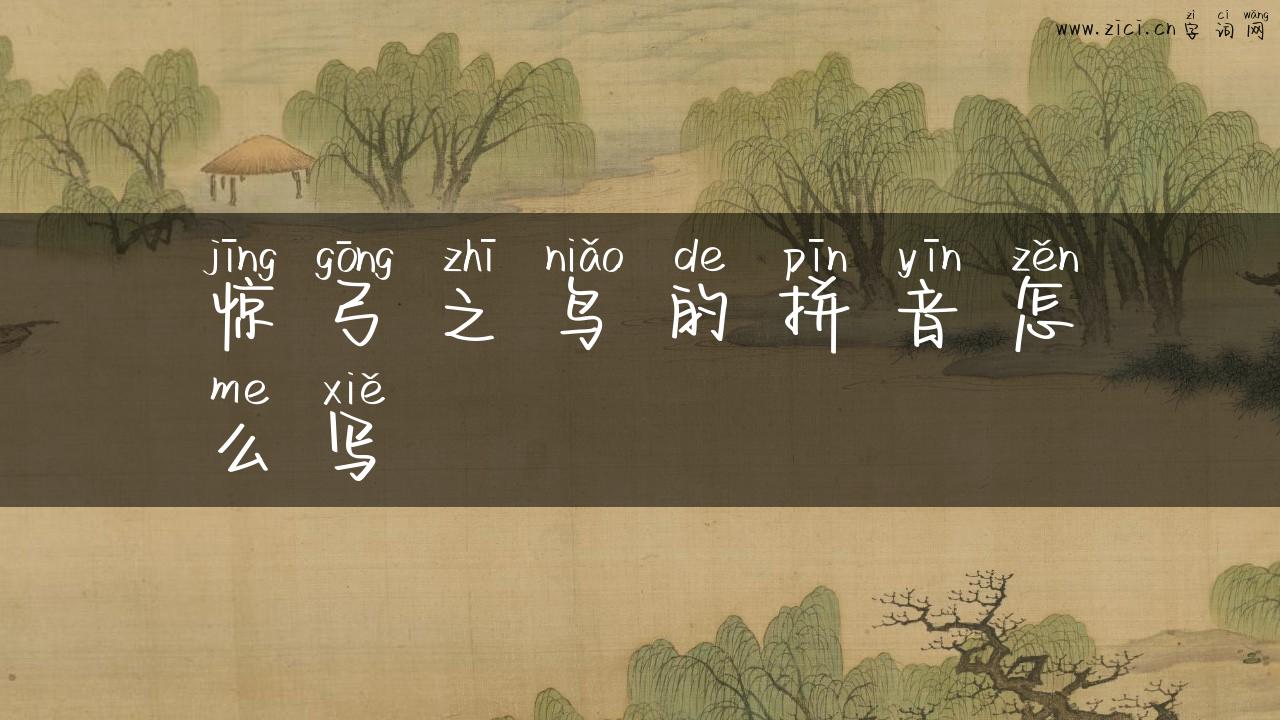 zì cí wǎng
www.zici.cn 字词网
jīng gōng zhī niǎo de pīn yīn zěn
惊弓之鸟的拼音怎
me xiě
么写